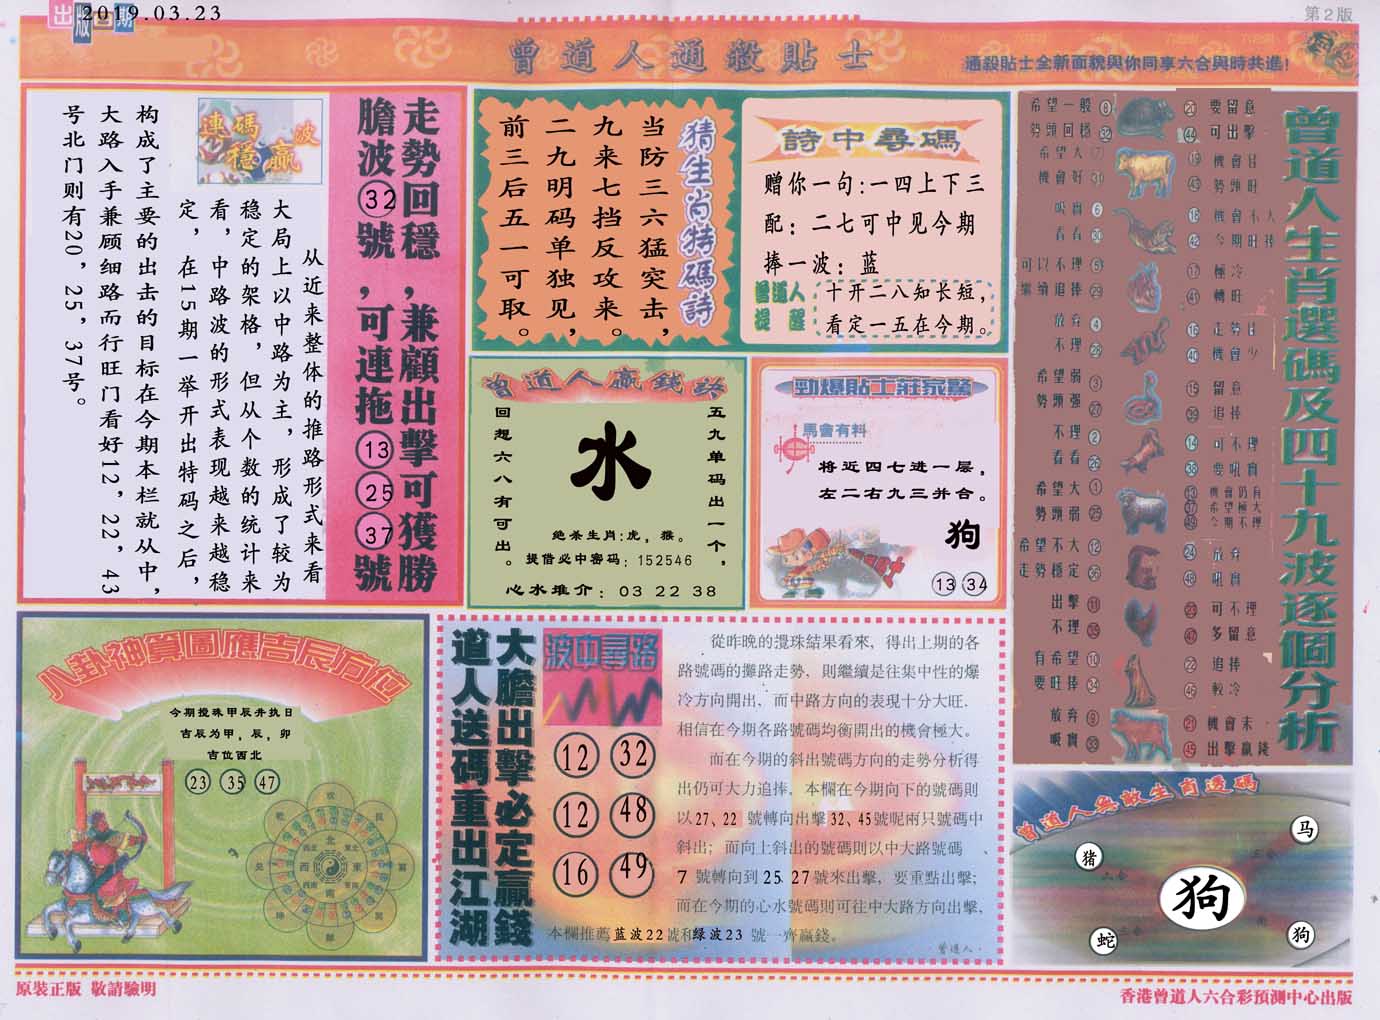 出版日期
2019.03.23
第2版
曾道人通殺貼士
通殺貼士全新面貌與你同享六合與時共進!
走勢回穩,兼顧出擊可獲勝
膽波32號,可連拖13 25 37號
連碼穩贏波
从近来整体的推路形式来看
大局上以中路为主,形成了较为
稳定的架格,但从个数的统计来
看,中路波的形式表现越来越稳
定,在15期一举开出特码之后,
构成了主要的出击的目标在今期本栏就从中,
大路入手兼顾细路而行旺门看好12,22,43
号北门则有20,25,37号。
猜生肖特碼詩
当防三六猛突击,
九来七挡反攻来。
二九明码单独见,
前三后五一可取。
詩中尋碼
赠你一句:一四上下三
配:二七可中见今期
捧一波:蓝
曾道人提醒
十开二八知长短,
看定一五在今期。
曾道人贏錢詩
五九单码出一个,
回想六八有可出。
水
绝杀生肖:虎,猴。
提借必中密码:152546
心水推介:03 22 38
勁爆貼士莊家驚
馬會有料
将近四七进一层,
左二右九三并合。
狗
13 34
曾道人生肖選碼及四十九波逐個分析
希望一般 8
勢頭回穩 32
希望大 7
機會好 31
吸實 6
看看 30
可以不理 5
繼續追捧 29
放弃 4
不理 28
希望弱 3
勢頭强 27
不理 2
看看 26
希望大 1
勢頭弱 25
希望不大 12
走勢穩定 36
出擊 11
不理 35
有希望 10
要旺捧 34
放弃 9
吸實 33
20 要留意
44 可出擊
19 機會佳
43 勢頭旺
18 機會不大
42 今期旺捧
17 極冷
41 轉旺
16 走勢佳
40 機會少
15 留意
39 追捧
14 可不理
38 要吼實
13 機會仍有
37 希望極大
49 今期不理
24 放弃
48 吼實
23 可不理
47 多留意
22 追捧
46 較冷
21 機會未
45 出擊贏錢
八卦神算圖應吉辰方位
今期搅珠甲辰并执日
吉辰为甲,辰,卯
吉位西北
23 35 47
北
東
南
西
大膽出擊必定贏錢
道人送碼重出江湖
波中尋路
12 32
12 48
16 49
從昨晚的攪珠結果看來,得出上期的各
路號碼的攤路走勢,則繼續是往集中性的爆
冷方向開出,而中路方向的表現十分大旺.
相信在今期各路號碼均衡開出的機會極大。
而在今期的斜出號碼方向的走勢分析得
出仍可大力追捧,本欄在今期向下的號碼則
以27、22 號轉向出擊32、45號呢兩只號碼中
斜出;而向上斜出的號碼則以中大路號碼、
7 號轉向到25 27號來出擊,要重點出擊;
而在今期的心水號碼則可往中大路方向出擊,
本欄推薦蓝波22號和绿波23 號一齊贏錢。
曾道人.
曾道人無敵生肖透碼
猪
马
狗
蛇
狗
原裝正版 敬請驗明
香港曾道人六合彩預測中心出版